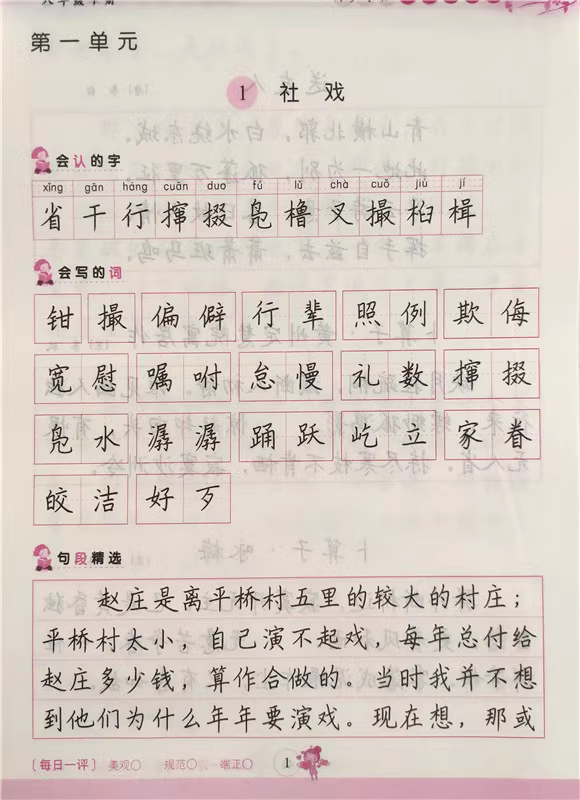 第一单元
1 社戏
会认的字
xǐng gān háng cuān duo fú lǔ chà cuō jiù jí
省 干 行 撺 掇 凫 橹 叉 撮 桕 楫
会写的词
钳 撮 偏僻 行辈 照例 欺侮
宽慰 嘱咐 怠慢 礼数 撺掇
凫水 潺潺 踊跃 屹立 家眷
皎洁 好歹
句段精选
赵庄是离平桥村五里的较大的村庄；
平桥村太小，自己演不起戏，每年总付给
赵庄多少钱，算作合做的。当时我并不想
到他们为什么年年要演戏。现在想，那或
〔每日一评〕 美观〇 规范〇 端正〇 1